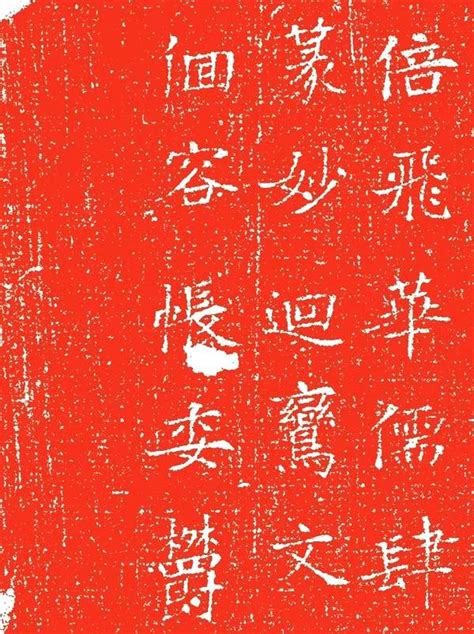 倍飛華儒肆
篆妙迴鸞文
佪容悵委欝